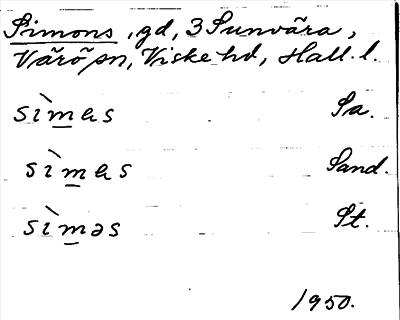 Simons, gd, 3 Sunvära,
Värö sn, Viske hd, Hall. l.
sìmas Sa.
sìmas Sand.
sìməs St.
1950.